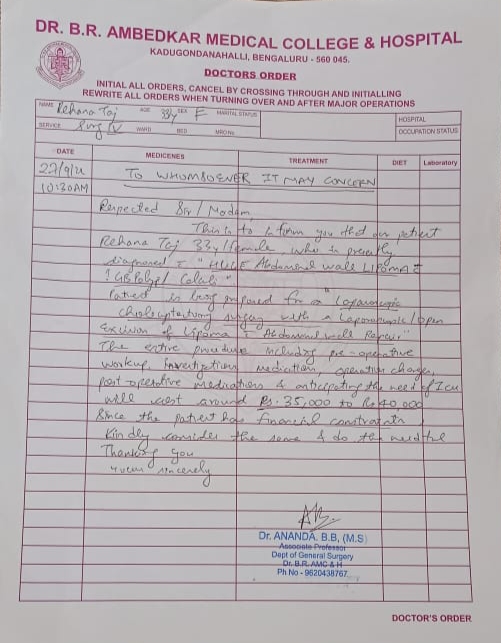 DR. B.R. AMBEDKAR MEDICAL COLLEGE & HOSPITAL
KADUGONDANAHALLI, BENGALURU - 560 045.
DOCTORS ORDER
INITIAL ALL ORDERS, CANCEL BY CROSSING THROUGH AND INITIALLING
REWRITE ALL ORDERS WHEN TURNING OVER AND AFTER MAJOR OPERATIONS
NAME Rehana Taj AGE 33y SEX F MARITAL STATUS HOSPITAL
SERVICE Surg IV WARD BED MRD No. OCCUPATION STATUS
DATE MEDICENES TREATMENT DIET Laboratory
TO WHOMSOEVER IT MAY CONCERN
10:30AM
Respected Sir/Madam,
This is to inform you that our patient
Rehana Taj 33y/female, who is presently
diagnosed "HUGE Abdominal wall LIPOMA
? GB Polyp/
Patient is being prepared for a "Laparoscopic
surgery with a Laparoscopic/open
Excision of Lipoma Abdominal wall Repair"
The entire procedure including pre-operative
workup, investigations, medication, operative charges,
post operative medications & anticipating the need of ICU
will cost around Rs. 35,000 to Rs 40,000
Since the patient has financial constraints
Kindly consider the same & do the needful
Thanking you
yours sincerely
Dr. ANANDA. B.B, (M.S)
Associate Professor
Dept of General Surgery
Dr. B.R. AMC & H
Ph.No - 9620438767
DOCTOR'S ORDER